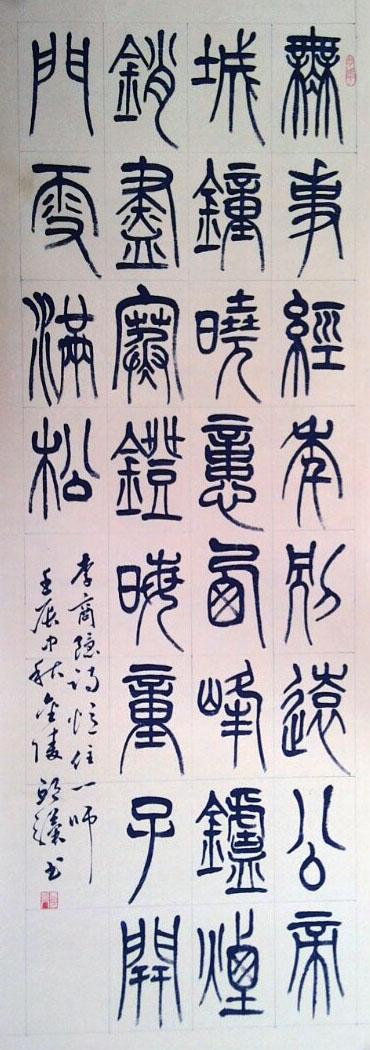 無事經年別遠公帝
城鐘曉憶西峰鑪煙
銷盡寒鐙晦童子開
門雪滿松
李商隐詩忆住一师
壬辰中秋金陵 书